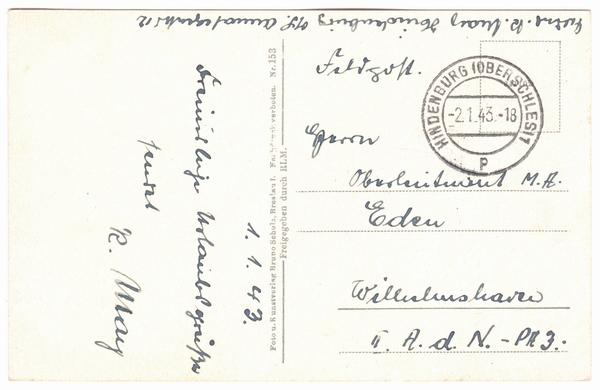 K. May Hindenburg O/S.
Feldpost.
HINDENBURG (OBERSCHLES) 1
-2.1.43.-18
p
Herrn
Oberleutnant M.A.
Eden
Wilhelmshaven
II. A. d. N.
1. 1. 43.
Urlaubsgrüße
sendet
K. May
Foto u. Kunstverlag Bruno Scholz, Breslau 1. Nachdruck verboten. Nr. 153
Freigegeben durch RLM.